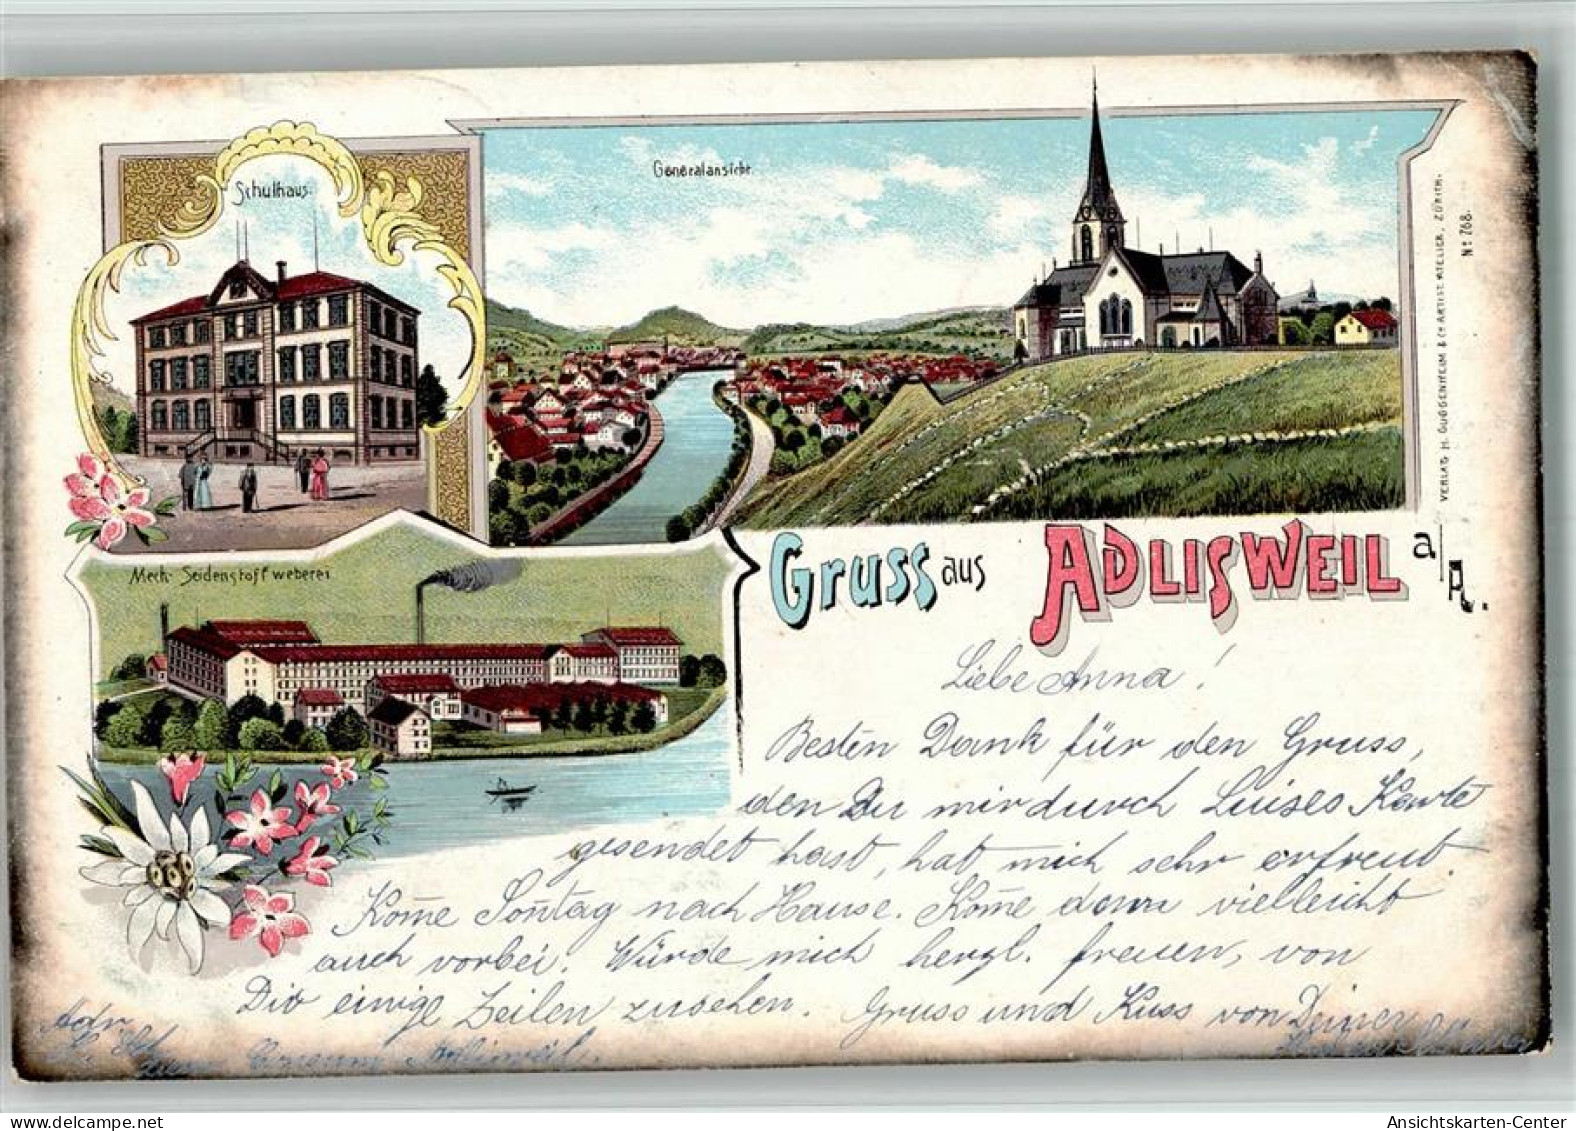 Schulhaus.
Generalansicht.
Mech. Seidenstoffweberei
Gruss aus ADLISWEIL a/A.
VERLAG H. GUGGENHEIM & Co ARTIST. ATELIER, ZÜRICH.
No 768.
Liebe Anna!
Besten Dank für den Gruss,
den Du mir durch Luises Karte
gesendet hast, hat mich sehr erfreut.
Kom̄e Som̄tag nach Hause. Kom̄e dann vielleicht
auch vorbei. Würde mich herzl. freuen, von
Dir einige Zeilen zu sehen. Gruss und Kuss von Deiner
Adr
Adlisweil.
oldthing.com
Ansichtskarten-Center